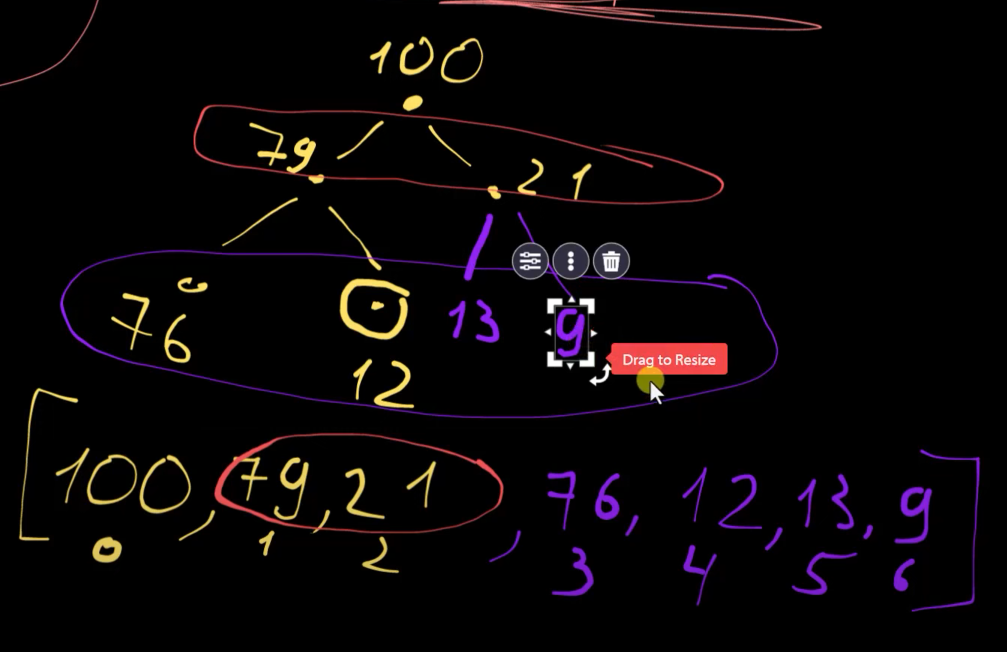 100
79 21
76 12 13 9
Drag to Resize
[100, 79, 21, 76, 12, 13, 9]
0 1 2 3 4 5 6